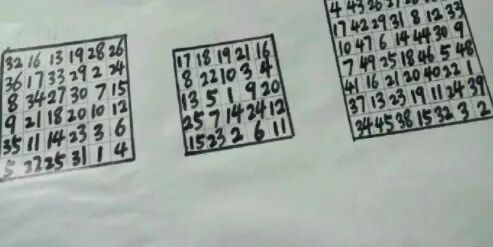 32 16 13 19 28 26
36 17 33 29 2 24
8 34 27 30 7 15
9 21 18 20 10 12
35 11 14 23 3 6
5 22 25 31 1 4
17 18 19 21 16
8 22 10 3 4
13 5 1 9 20
25 7 14 24 12
15 23 2 6 11
4 43 26 27
17 42 29 31 8 12 33
10 47 6 14 44 30 9
7 49 25 18 46 5 48
41 16 21 20 40 22 1
37 13 23 19 11 24 39
34 45 38 15 32 3 2